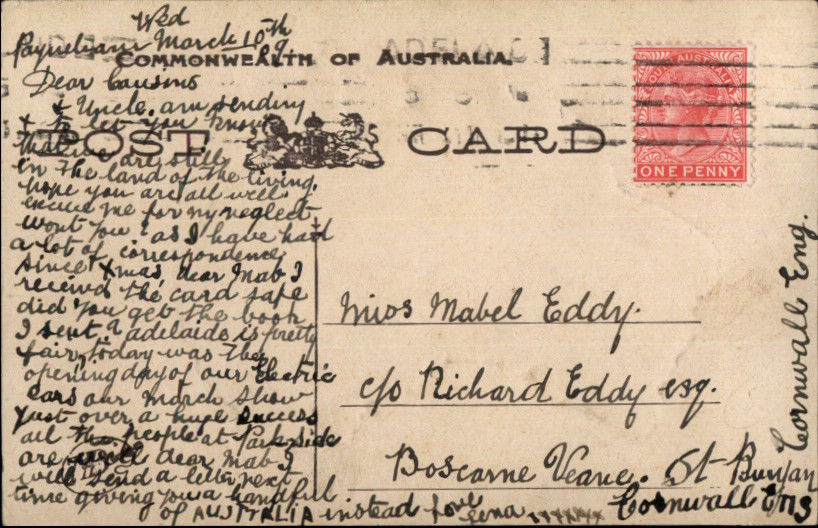 Wed
Payneham March 10th
09
COMMONWEALTH OF AUSTRALIA.
POST CARD
ONE PENNY
Dear Cousins
& Uncle, am sending
to let you know
that we are still
in the land of the living.
hope you are all well
excuse me for my neglect
wont you? as I have had
a lot of correspondence
since Xmas, dear Mab I
receivd the card safe
did you get the book
I sent? adelaide is pretty
fair, today was the
opening day of our Electric
cars our march show
just over, a huge success
all the people at Parkside
are well dear Mab I
will send a letter next
time giving you a handful
of AUSTRALIA instead love
Lena xxxxxx
Miss Mabel Eddy.
c/o Richard Eddy esq.
Boscarne Veane. St Buryan
Cornwall Eng
Cornwall Eng.